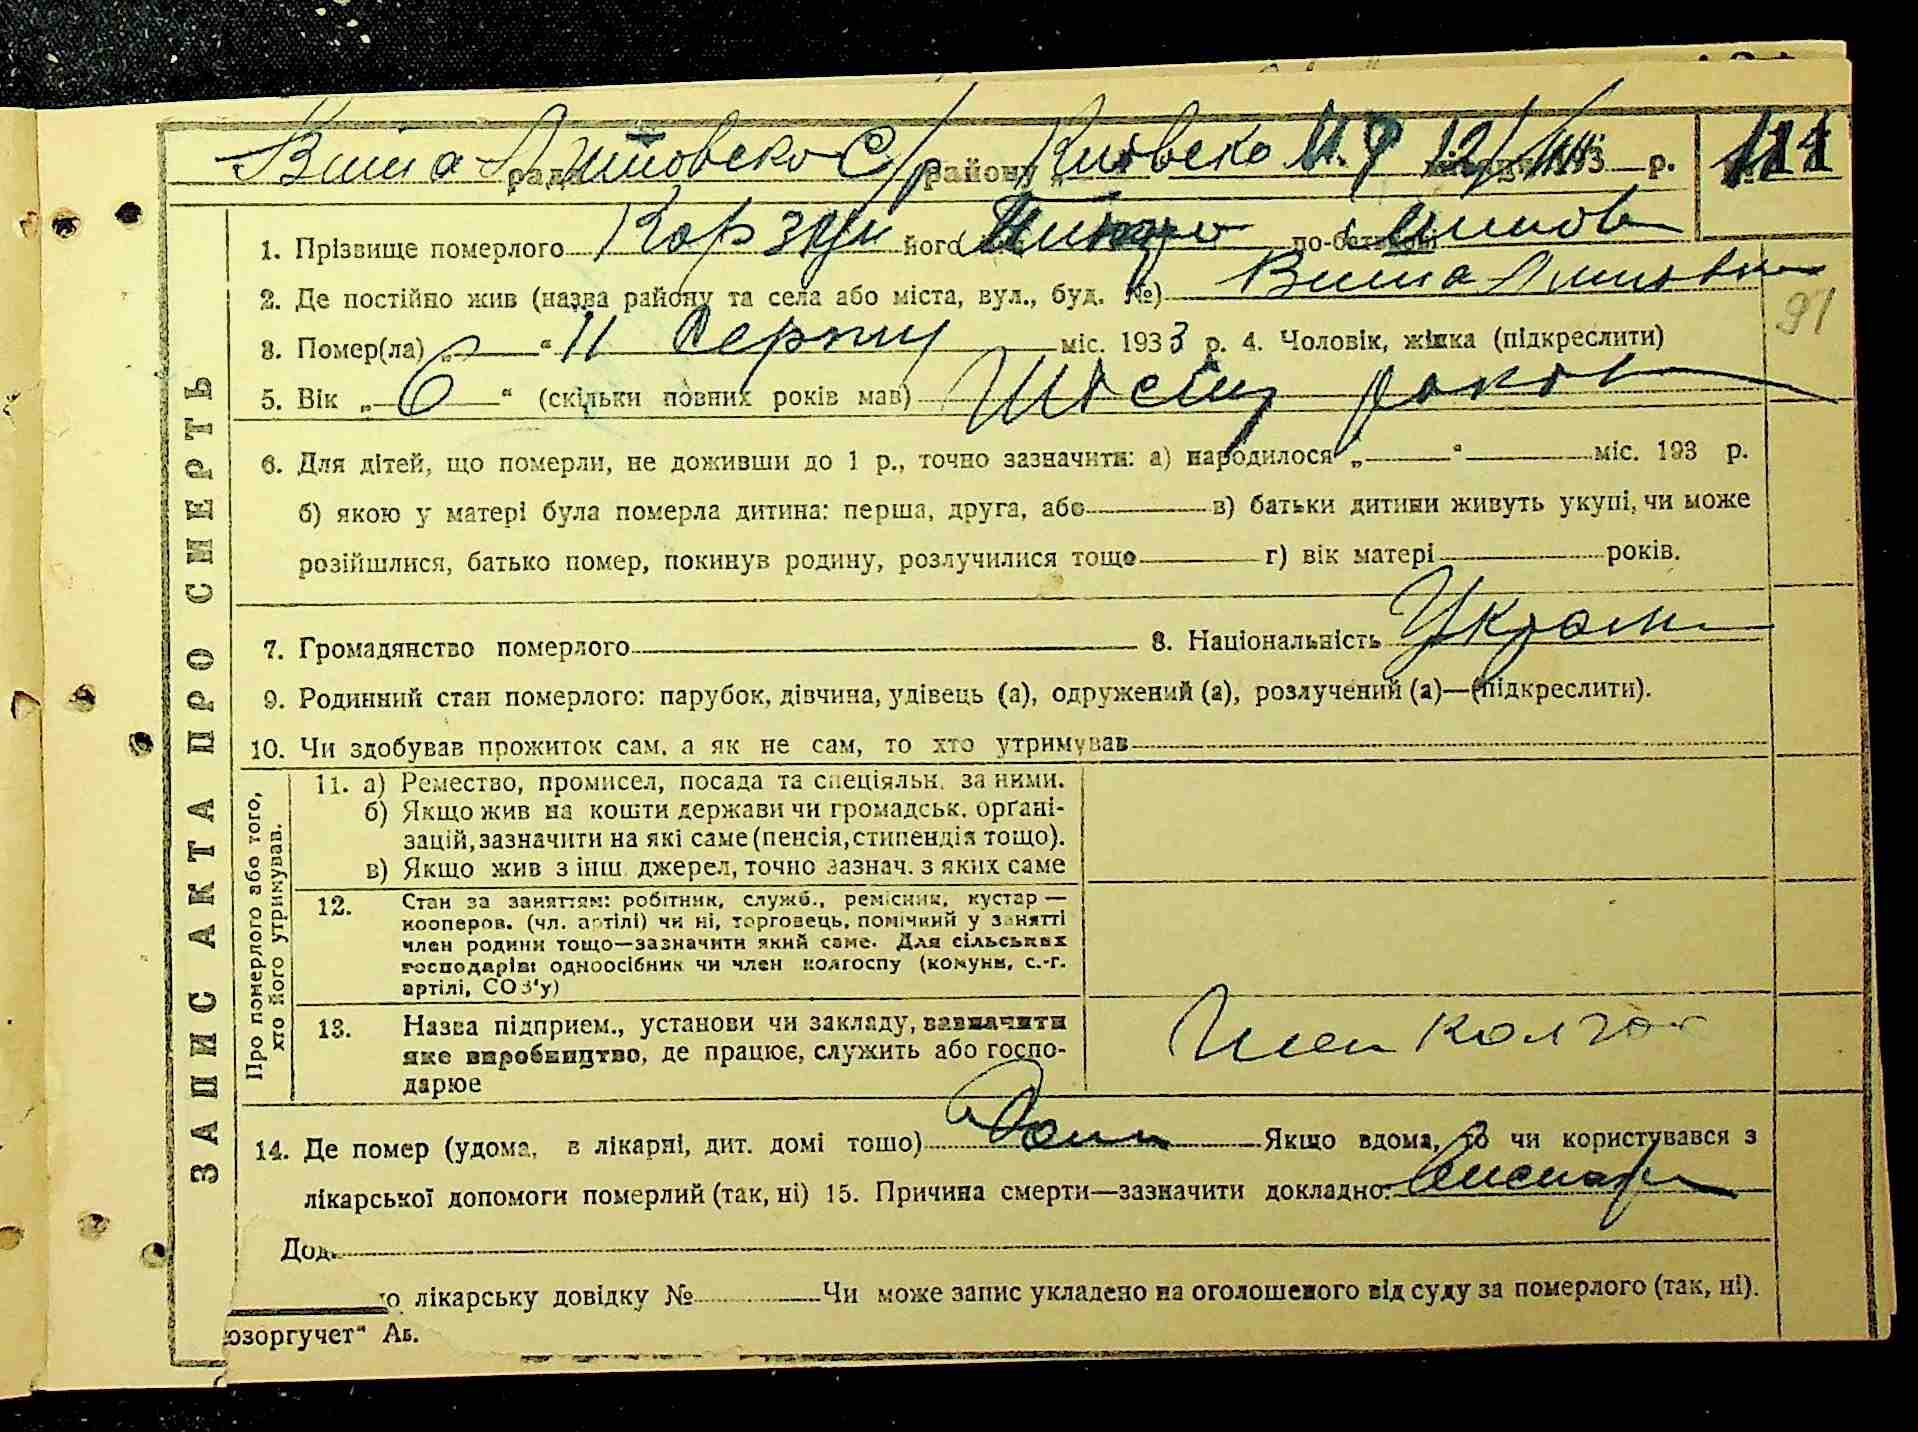 Вита Литовско С/р району Київсько М. Р 12/VIII 1933 р. 111
ЗАПИС АКТА ПРО СМЕРТЬ
1. Прізвище померлого Корзун його по-батькові
2. Де постійно жив (назва району та села або міста, вул., буд. №) Вита Литовсь
91
3. Помер(ла) „ “ 11 Серпня міс. 1933 р. 4. Чоловік, жінка (підкреслити)
5. Вік „ 6 “ (скільки повних років мав) Шість років
6. Для дітей, що померли, не доживши до 1 р., точно зазначити: а) народилося „ “ міс. 193 р.
б) якою у матері була померла дитина: перша, друга, або в) батьки дитини живуть укупі, чи може
розійшлися, батько помер, покинув родину, розлучилися тощо г) вік матері років.
7. Громадянство померлого 8. Національність Україн
9. Родинний стан померлого: парубок, дівчина, удівець (а), одружений (а), розлучений (а)—(підкреслити).
10. Чи здобував прожиток сам, а як не сам, то хто утримував
Про померлого або того,
хто його утримував.
11. а) Ремество, промисел, посада та спеціяльн. за ними.
б) Якщо жив на кошти держави чи громадськ. орґані-
зацій, зазначити на які саме (пенсія, стипендія тощо).
в) Якщо жив з інш. джерел, точно зазнач. з яких саме
12. Стан за заняттям: робітник, служб., ремісник, кустар —
кооперов. (чл. артілі) чи ні, торговець, помічний у занятті
член родини тощо—зазначити який саме. Для сільських
господарів: одноосібник чи член колгоспу (комуни, с.-г.
артілі, СОЗ'у)
13. Назва підприєм., установи чи закладу, зазначити
яке виробництво, де працює, служить або госпо-
дарюе
Член колгос
14. Де помер (удома, в лікарні, дит. домі тощо) Дома Якщо вдома, то чи користувався з
лікарської допомоги померлий (так, ні) 15. Причина смерти—зазначити докладно:
Дод.
ю лікарську довідку № Чи може запис укладено на оголошеного від суду за померлого (так, ні).
озоргучет“ Ав.